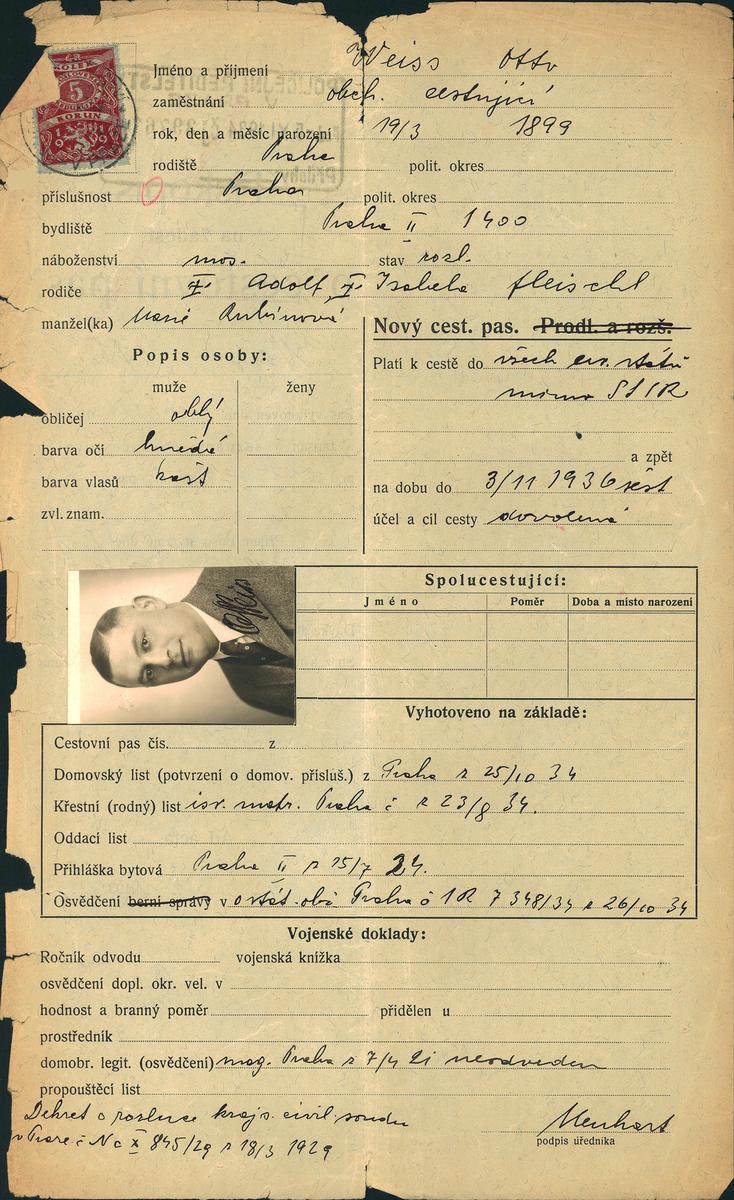 Jméno a příjmení Weiss Otto
zaměstnání obch. cestující
rok, den a měsíc narození 19/3 1899
rodiště Praha polit. okres
příslušnost Praha polit. okres
bydliště Praha II 1400
náboženství mos. stav rozl.
rodiče Adolf, Isabela Fleischl
manžel(ka) Marie Rubínová
Nový cest. pas. Prodl. a rozš.
Popis osoby:
muže ženy
obličej oblý
barva očí hnědé
barva vlasů kašt
zvl. znam.
Platí k cestě do všech ev. států
mimo SSSR
a zpět
na dobu do 3/11 1936 šest
účel a cíl cesty dovolená
Spolucestující:
Jméno Poměr Doba a místo narození
Vyhotoveno na základě:
Cestovní pas čís. z
Domovský list (potvrzení o domov. přísluš.) z Praha z 25/10 34
Křestní (rodný) list isr. matr. Praha č z 23/8 34.
Oddací list
Přihláška bytová Praha II z 15/7 24.
Osvědčení berní správy v Praha č 1R 7 348/34 z 26/10 34
Vojenské doklady:
Ročník odvodu vojenská knížka
osvědčení dopl. okr. vel. v
hodnost a branný poměr přidělen u
prostředník
domobr. legit. (osvědčení) mag. Praha z 7/4 21 neodveden
propouštěcí list
Dekret o rozluce krajs. civil. soudu
v Praze č Nc X 845/29 z 18/3 1929
Menhart
podpis úředníka
KOLEK
5
KORUN